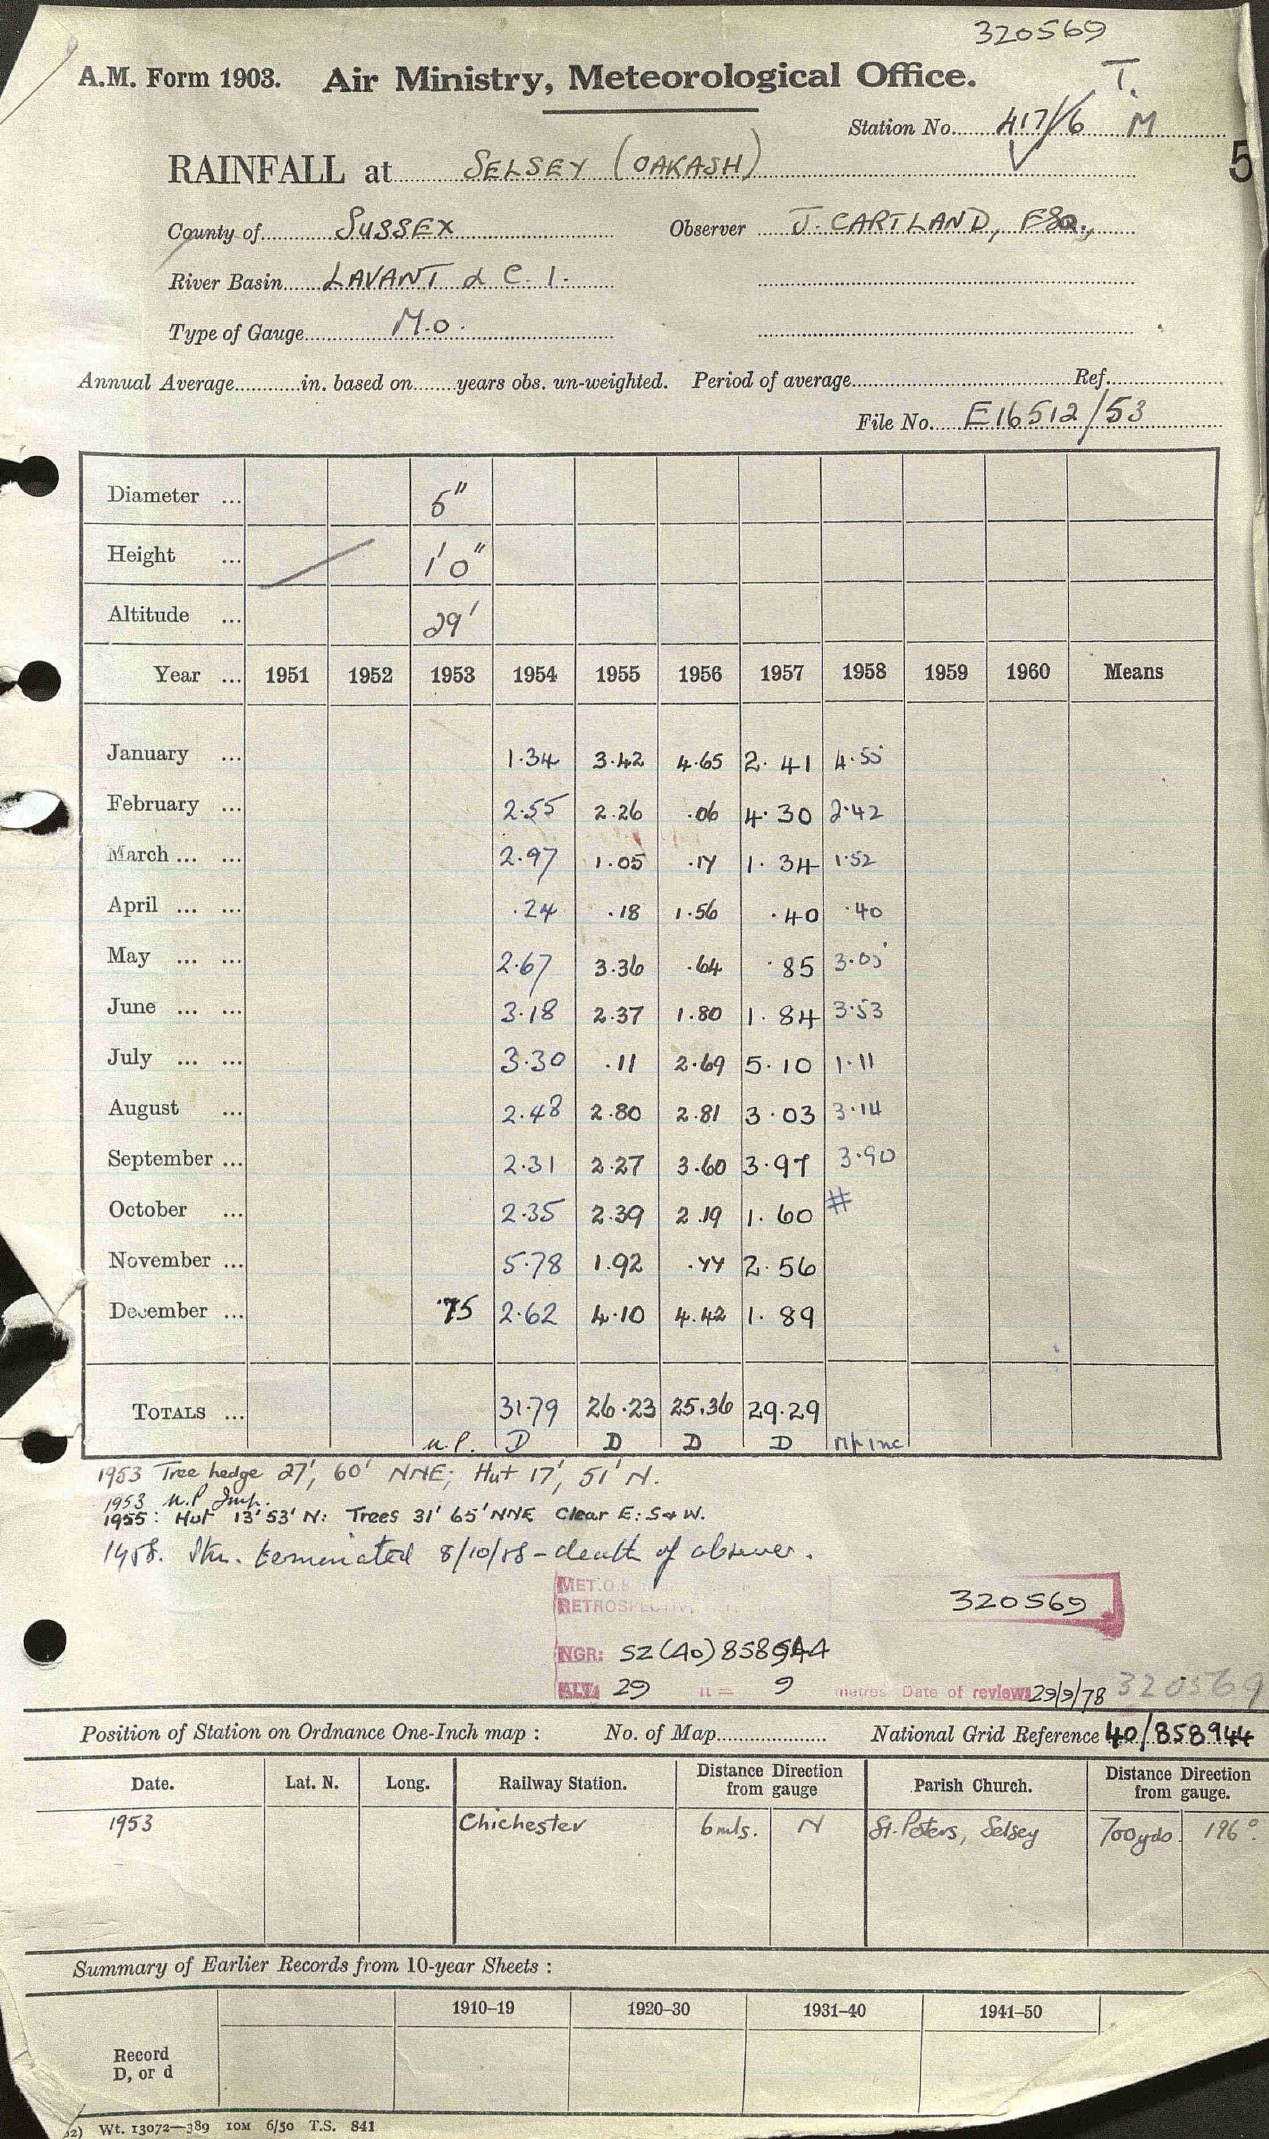 320569
A.M. Form 1903. Air Ministry, Meteorological Office. T.
Station No. 417/6 M
RAINFALL at SELSEY (OAKASH) 5
County of SUSSEX Observer J. CARTLAND, ESQ.,
River Basin LAVANT & C. 1.
Type of Gauge M.O.
Annual Average in. based on years obs. un-weighted. Period of average Ref.
File No. E16512/53
Diameter ... 5"
Height ... 1'0"
Altitude ... 29'
Year ... 1951 1952 1953 1954 1955 1956 1957 1958 1959 1960 Means
January ... 1.34 3.42 4.65 2.41 4.55
February ... 2.55 2.26 .06 4.30 2.42
March ... ... 2.97 1.05 .17 1.34 1.52
April ... ... .24 .18 1.56 .40 .40
May ... ... 2.67 3.36 .64 .85 3.05
June ... ... 3.18 2.37 1.80 1.84 3.53
July ... ... 3.30 .11 2.69 5.10 1.11
August ... 2.48 2.80 2.81 3.03 3.14
September ... 2.31 2.27 3.60 3.97 3.90
October ... 2.35 2.39 2.19 1.60 #
November ... 5.78 1.92 .77 2.56
December ... .75 2.62 4.10 4.42 1.89
TOTALS ... 31.79 26.23 25.36 29.29
n.P. D D D D np inc
1953 Tree hedge 27', 60' NNE; Hut 17', 51' N.
1953 n.P Imp.
1955: Hut 13' 53' N: Trees 31' 65' NNE Clear E: S & W.
1958. Stn. terminated 8/10/58 - death of observer.
MET.O.8
RETROSPECTIVE 320569
NGR: SZ(40)858944
ALT. 29 ft = 9 metres Date of review 29/9/78 320569
Position of Station on Ordnance One-Inch map : No. of Map National Grid Reference 40/858944
Date. Lat. N. Long. Railway Station. Distance from gauge Direction Parish Church. Distance Direction from gauge.
1953 Chichester 6 mls. N St. Peters, Selsey 700yds. 196°.
Summary of Earlier Records from 10-year Sheets :
1910–19 1920–30 1931–40 1941–50
Record
D, or d
32) Wt. 13072—389 10M 6/50 T.S. 841